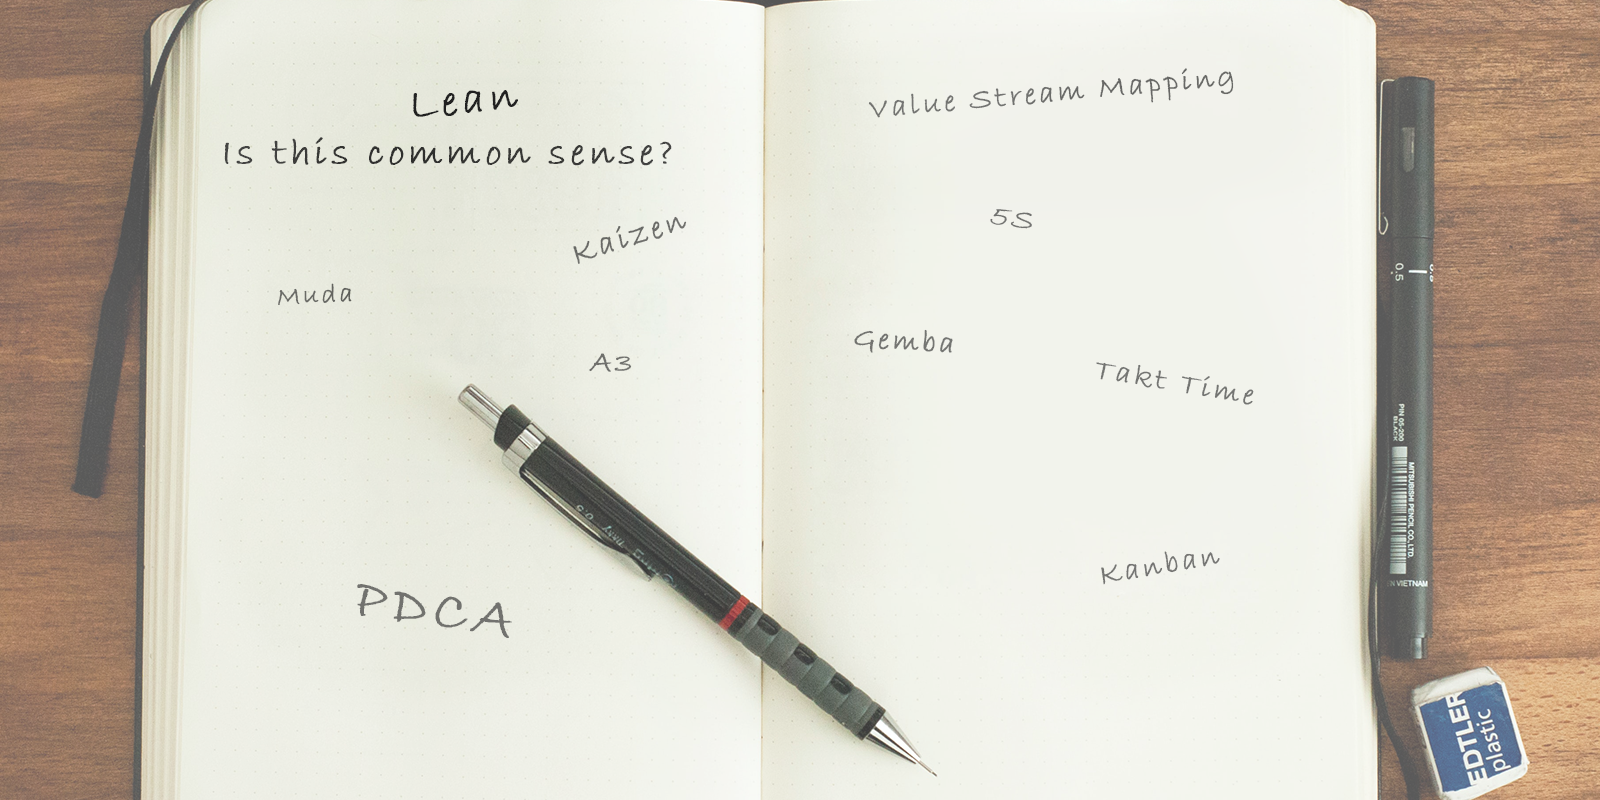 Lean
Is this common sense?
Kaizen
Muda
A3
PDCA
Value Stream Mapping
5S
Gemba
Takt Time
Kanban
0.5
PIN 05-200
BLACK
MITSUBISHI PENCIL CO., LTD.
VIETNAM
plastic